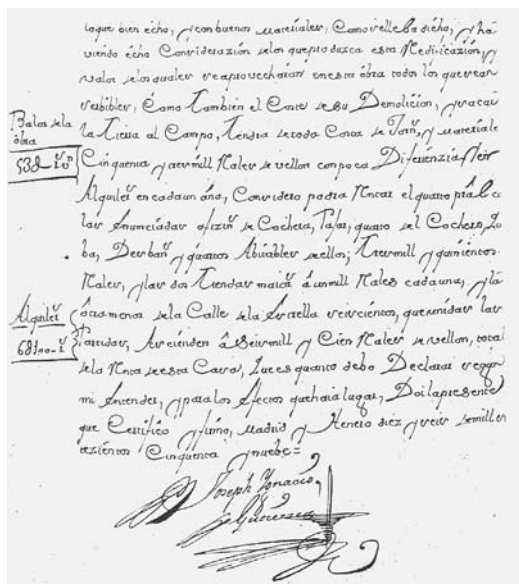 logue bien echo, y con buenos materiales, Comoselleba dicho, y ha
viendo echo Considerazión delos que produzca esta Redificazión, y
valor delos quales se aprovecharan en esta óbra todos los que sean
serbibles, Como Tambien el Coste de su Demolición, y sacar
la Tierra al Campo, Tendra de toda Costa de y Materiales
Balor dela
óbra
Cinquenta y tres mill Rales de vellon con poca Diferenzia,
Alquiler en cada un áno, Considero podra Rentar el quarto pral. Ca
las Anunciadas ofizas de Cochera, Pajar, quarto del Cochero,
Desban y quartos Abitables de ellos; Tres mill y quinientos
Rales, y las dos Tiendas á un mill Rales cada una, y la
Alquiler
menor dela Calle dela seiscientos, que unidas las
Partidas, Ascienden á Seis mill y Cien Rales de vellon, total
dela Renta de esta Casa, Lo es quanto debo Declarar segun
mi Entender, y para los Efectos que haia lugar, Doi la presente
que Certifico y firmo, Madrid y Henero diez y seis de mill se
tezientos Cinquenta y nuebe =
Joseph Ygnacio